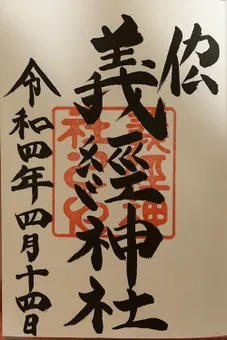 義經神社
義經神
社之印
令和四年四月十四日